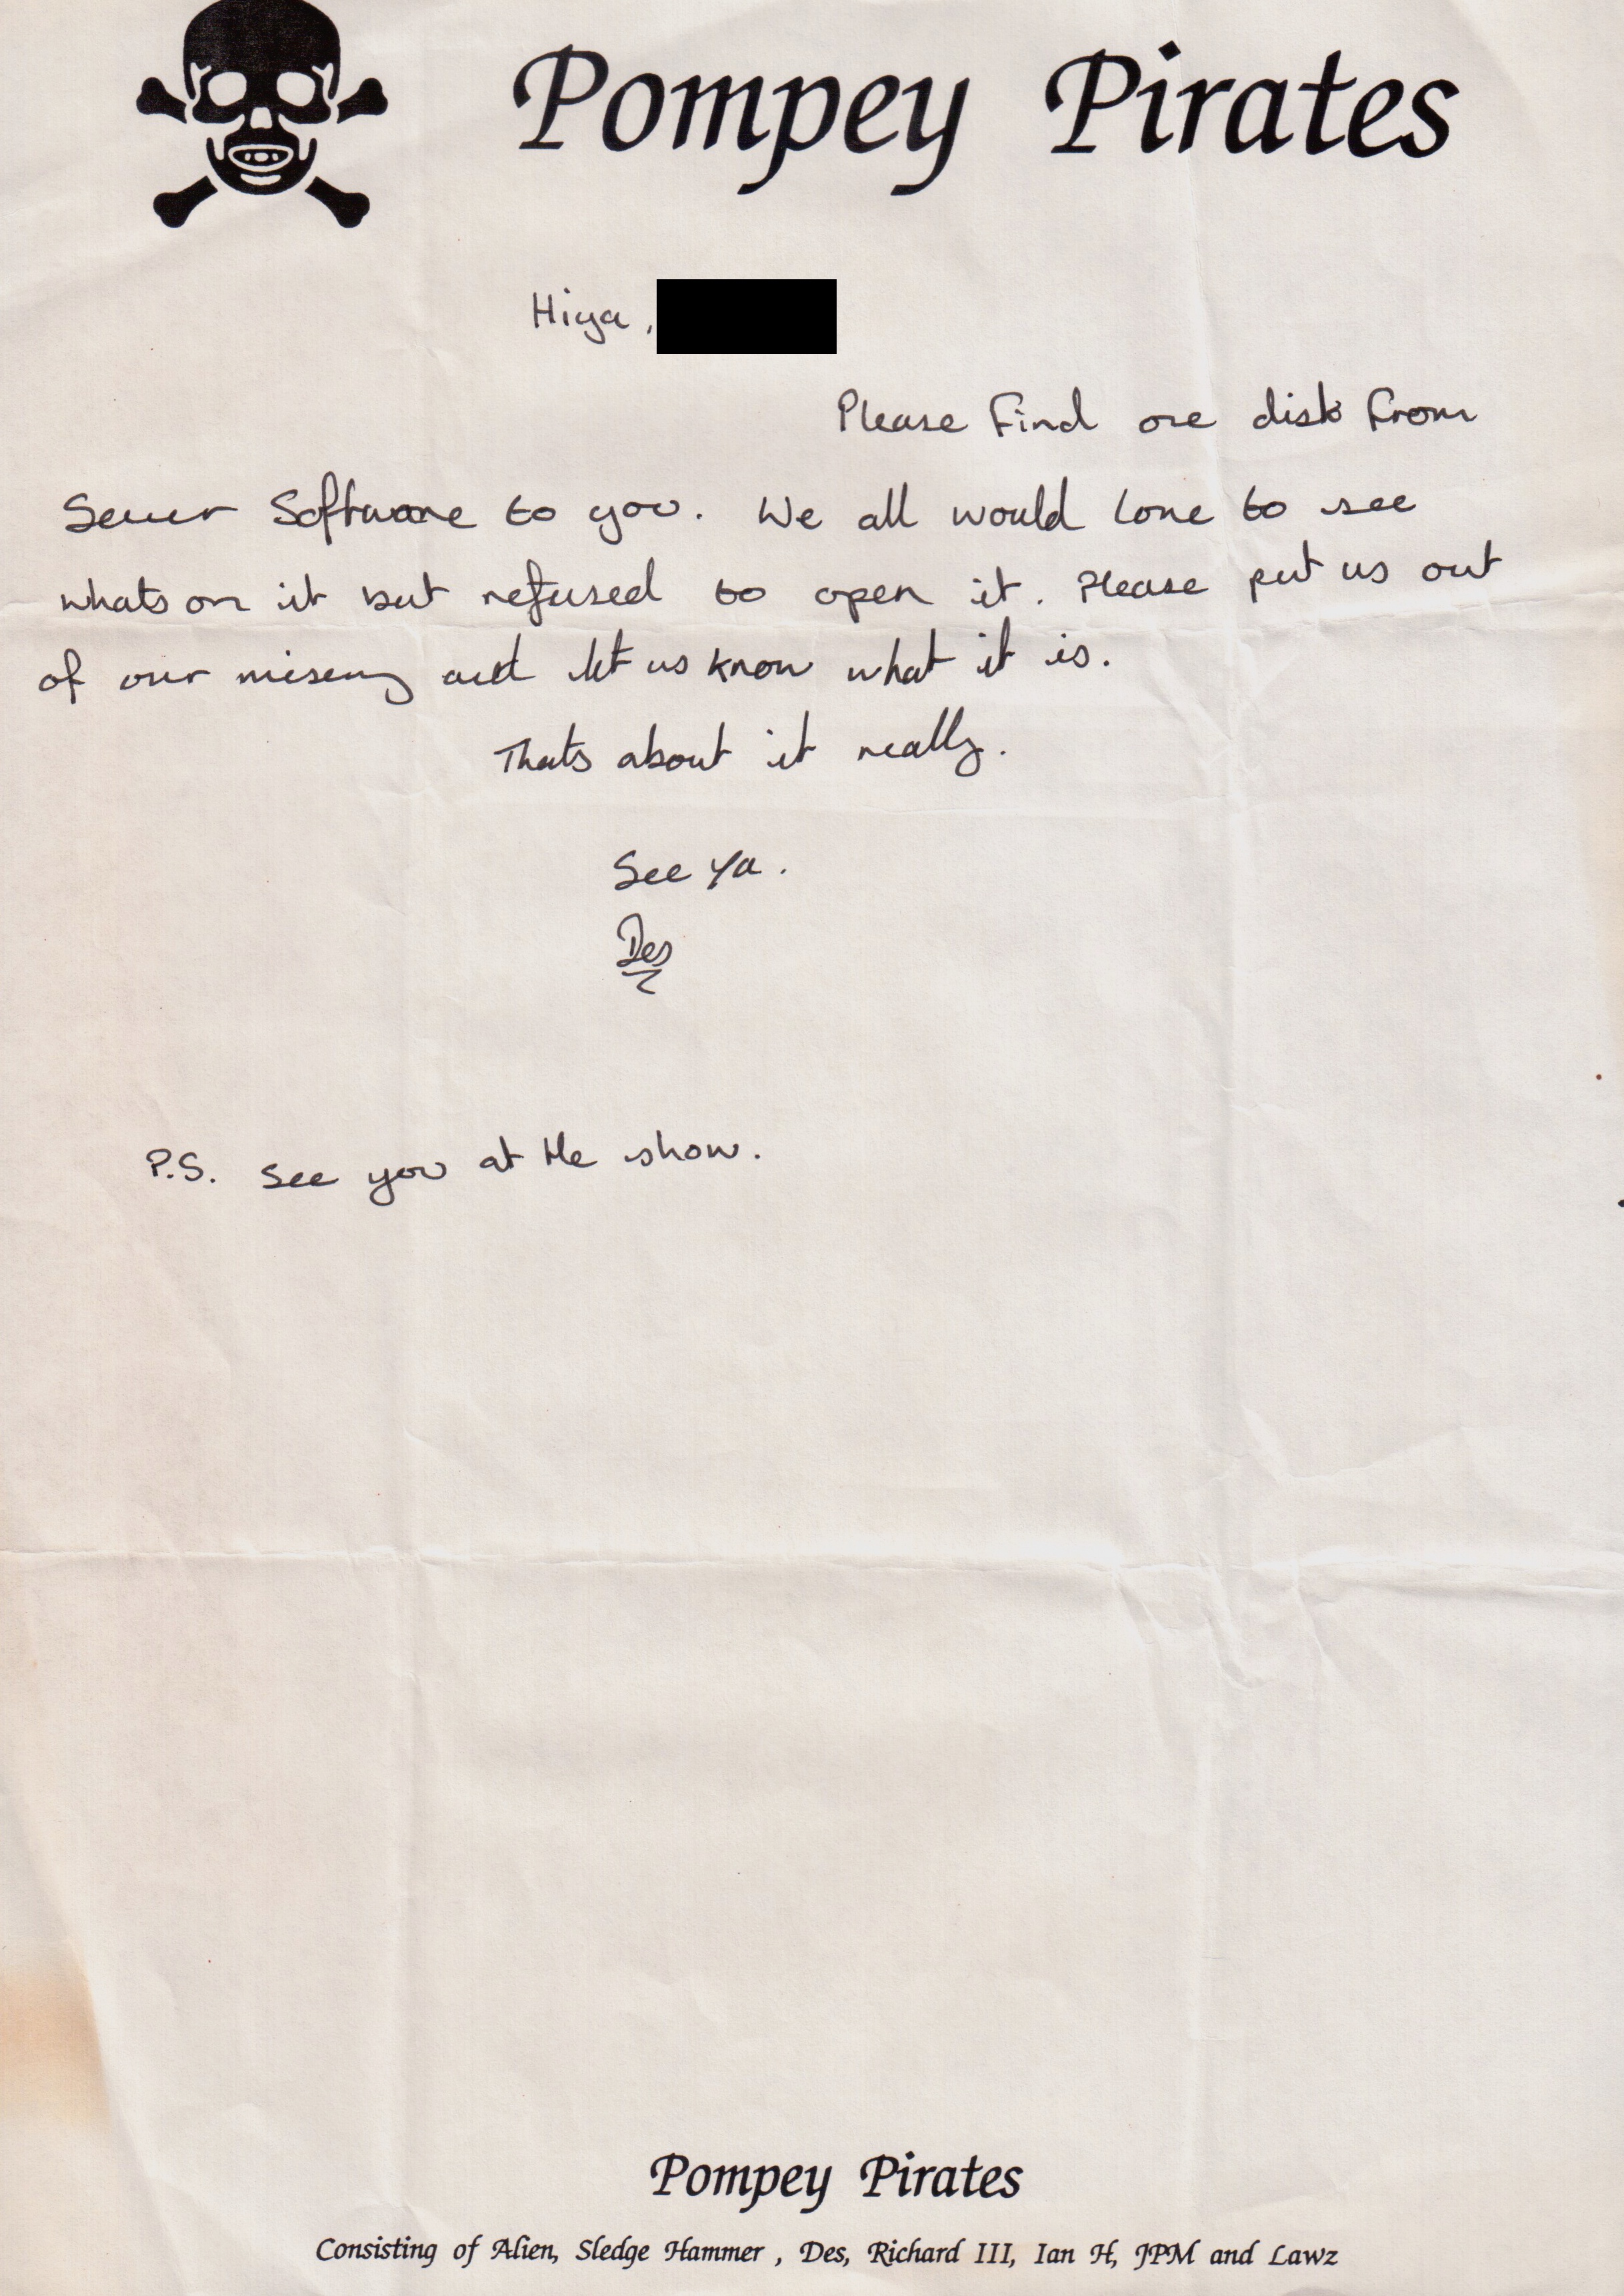 Pompey Pirates
Hiya,
Please find one disk from
Sewer Software to you. We all would love to see
whats on it but refused to open it. Please put us out
of our misery and let us know what it is.
Thats about it really.
See ya.
Des
P.S. See you at the show.
Pompey Pirates
Consisting of Alien, Sledge Hammer , Des, Richard III, Ian H, JPM and Lawz